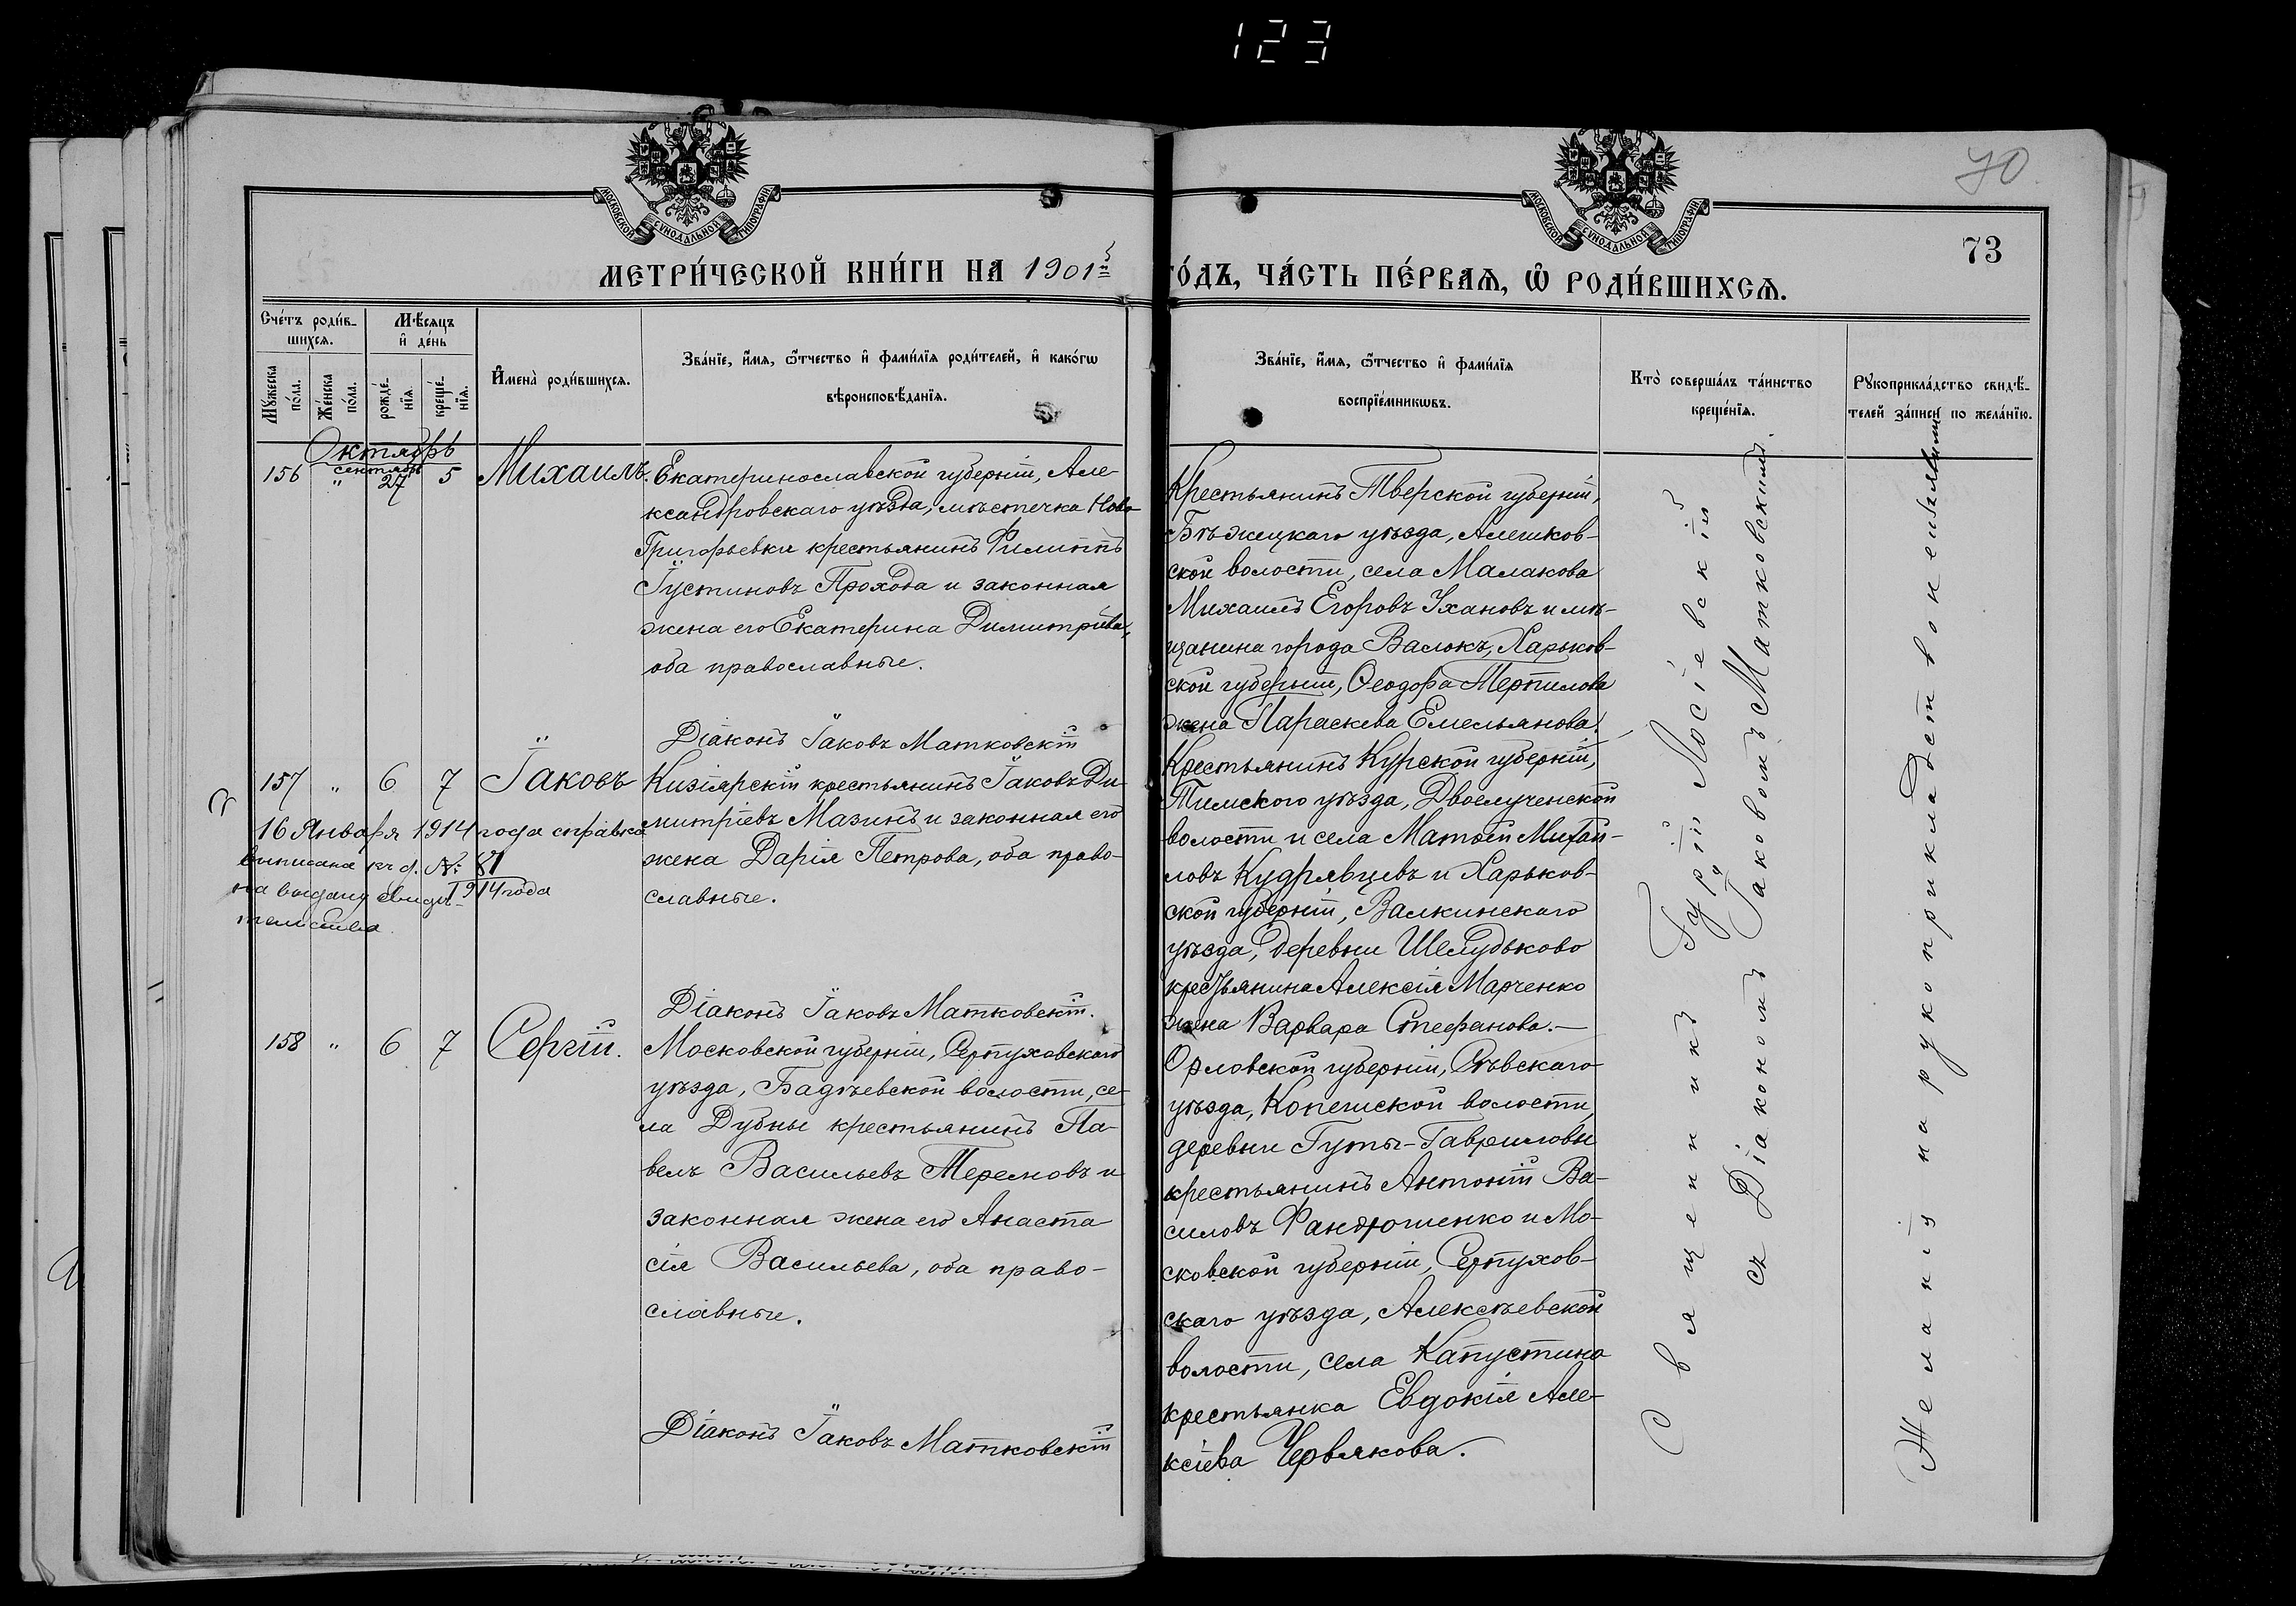 123
МОСКОВСКОЙ СѴНОДАЛЬНОЙ ТИПОГРАФІИ
МОСКОВСКОЙ СѴНОДАЛЬНОЙ ТИПОГРАФІИ
70
73
МЕТРИ́ЧЕСКОЙ КНИ́ГИ НА 1901й
ГО́ДЪ, ЧА́СТЬ ПЕ́РВАѦ, Ѡ҆ РОДИ́ВШИХСѦ.
Сче́тъ роди́в-
шихсѧ.
Мѣ́сѧцъ
и҆ де́нь
Мꙋ́жеска
по́ла.
Же́нска
по́ла.
рожде́-
нїѧ.
креще́-
нїѧ.
И҆мена̀ роди́вшихсѧ.
Зва́нїе, и҆́мѧ, ѻ҆́тчество и҆ фами́лїѧ роди́телей, и҆ како́гѡ
вѣроисповѣ́данїѧ.
Зва́нїе, и҆́мѧ, ѻ҆́тчество и҆ фами́лїѧ
воспрїе́мникѡвъ.
Кто̀ соверша́лъ та́инство
креще́нїѧ.
Рꙋкоприкла́дство свидѣ́-
телей за́писи по жела́нїю.
Октябрь
сентябр
156 " 27 5 Михаилъ.
Екатеринославской губерніи, Але-
ксандровскаго уѣзда, мѣстечка Ново-
Григорьевки крестьянинъ Филиппъ
Іустиновъ Прохода и законная
жена его Екатерина Димитріева,
оба православные.
Діаконъ Іаковъ Матковскій
Крестьянинъ Тверской губерніи,
Бѣжецкаго уѣзда, Алешков-
ской волости, села Малакова
Михаилъ Егоровъ Ухановъ и мѣ-
щанина города Валокъ, Харьков-
ской губерніи, Ѳеодора Терпилова
жена Параскева Емельянова.
157 " 6 7 Іаковъ
16 Января 1914 года справка
выписана къ д. №: 81
на выдачу свидѣ- 1914 года
тельства
Кизіярскій крестьянинъ Іаковъ Ди-
митріевъ Мазинъ и законная его
жена Дарія Петрова, оба право-
славные.
Діаконъ Іаковъ Матковскій.
Крестьянинъ Курской губерніи,
Тимского уѣзда, Двоелученской
волости и села Матѳей Михай-
ловъ Кудрявцевъ и Харьков-
ской губерніи, Валкинскаго
уѣзда, деревни Шелудьково
крестьянина Алексія Марченко
жена Варвара Стефанова.—
158 " 6 7 Сергій.
Московской губерніи, Серпуховскаго
уѣзда, Бадѣевской волости, се-
ла Дубны крестьянинъ Па-
велъ Васильевъ Теремовъ и
законная жена его Анаста-
сія Васильева, оба право-
славные.
Діаконъ Іаковъ Матковскій
Орловской губерніи, Сѣвскаго
уѣзда, Копешской волости,
деревни Гуты-Гавриловы
крестьянинъ Антоній Ва-
силовъ Фандюшенко и Мо-
сковской губерніи, Серпухов-
скаго уѣзда, Алексѣевской
волости, села Капустино
крестьянка Евдокія Але-
ксіева Червякова.
Священникъ Гурій Лосіевскій
съ Діакономъ Іаковомъ Матковскимъ.